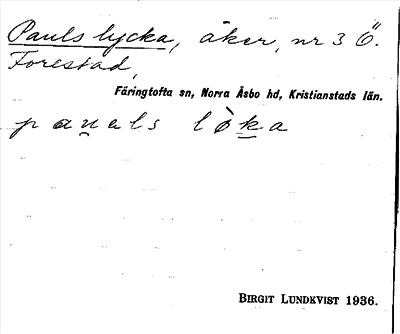 Pauls lycka, åker, nr 3 Ö.
Forestad,
Färingtofta sn, Norra Åsbo hd, Kristianstads län.
pauals lòka
BIRGIT LUNDKVIST 1936.